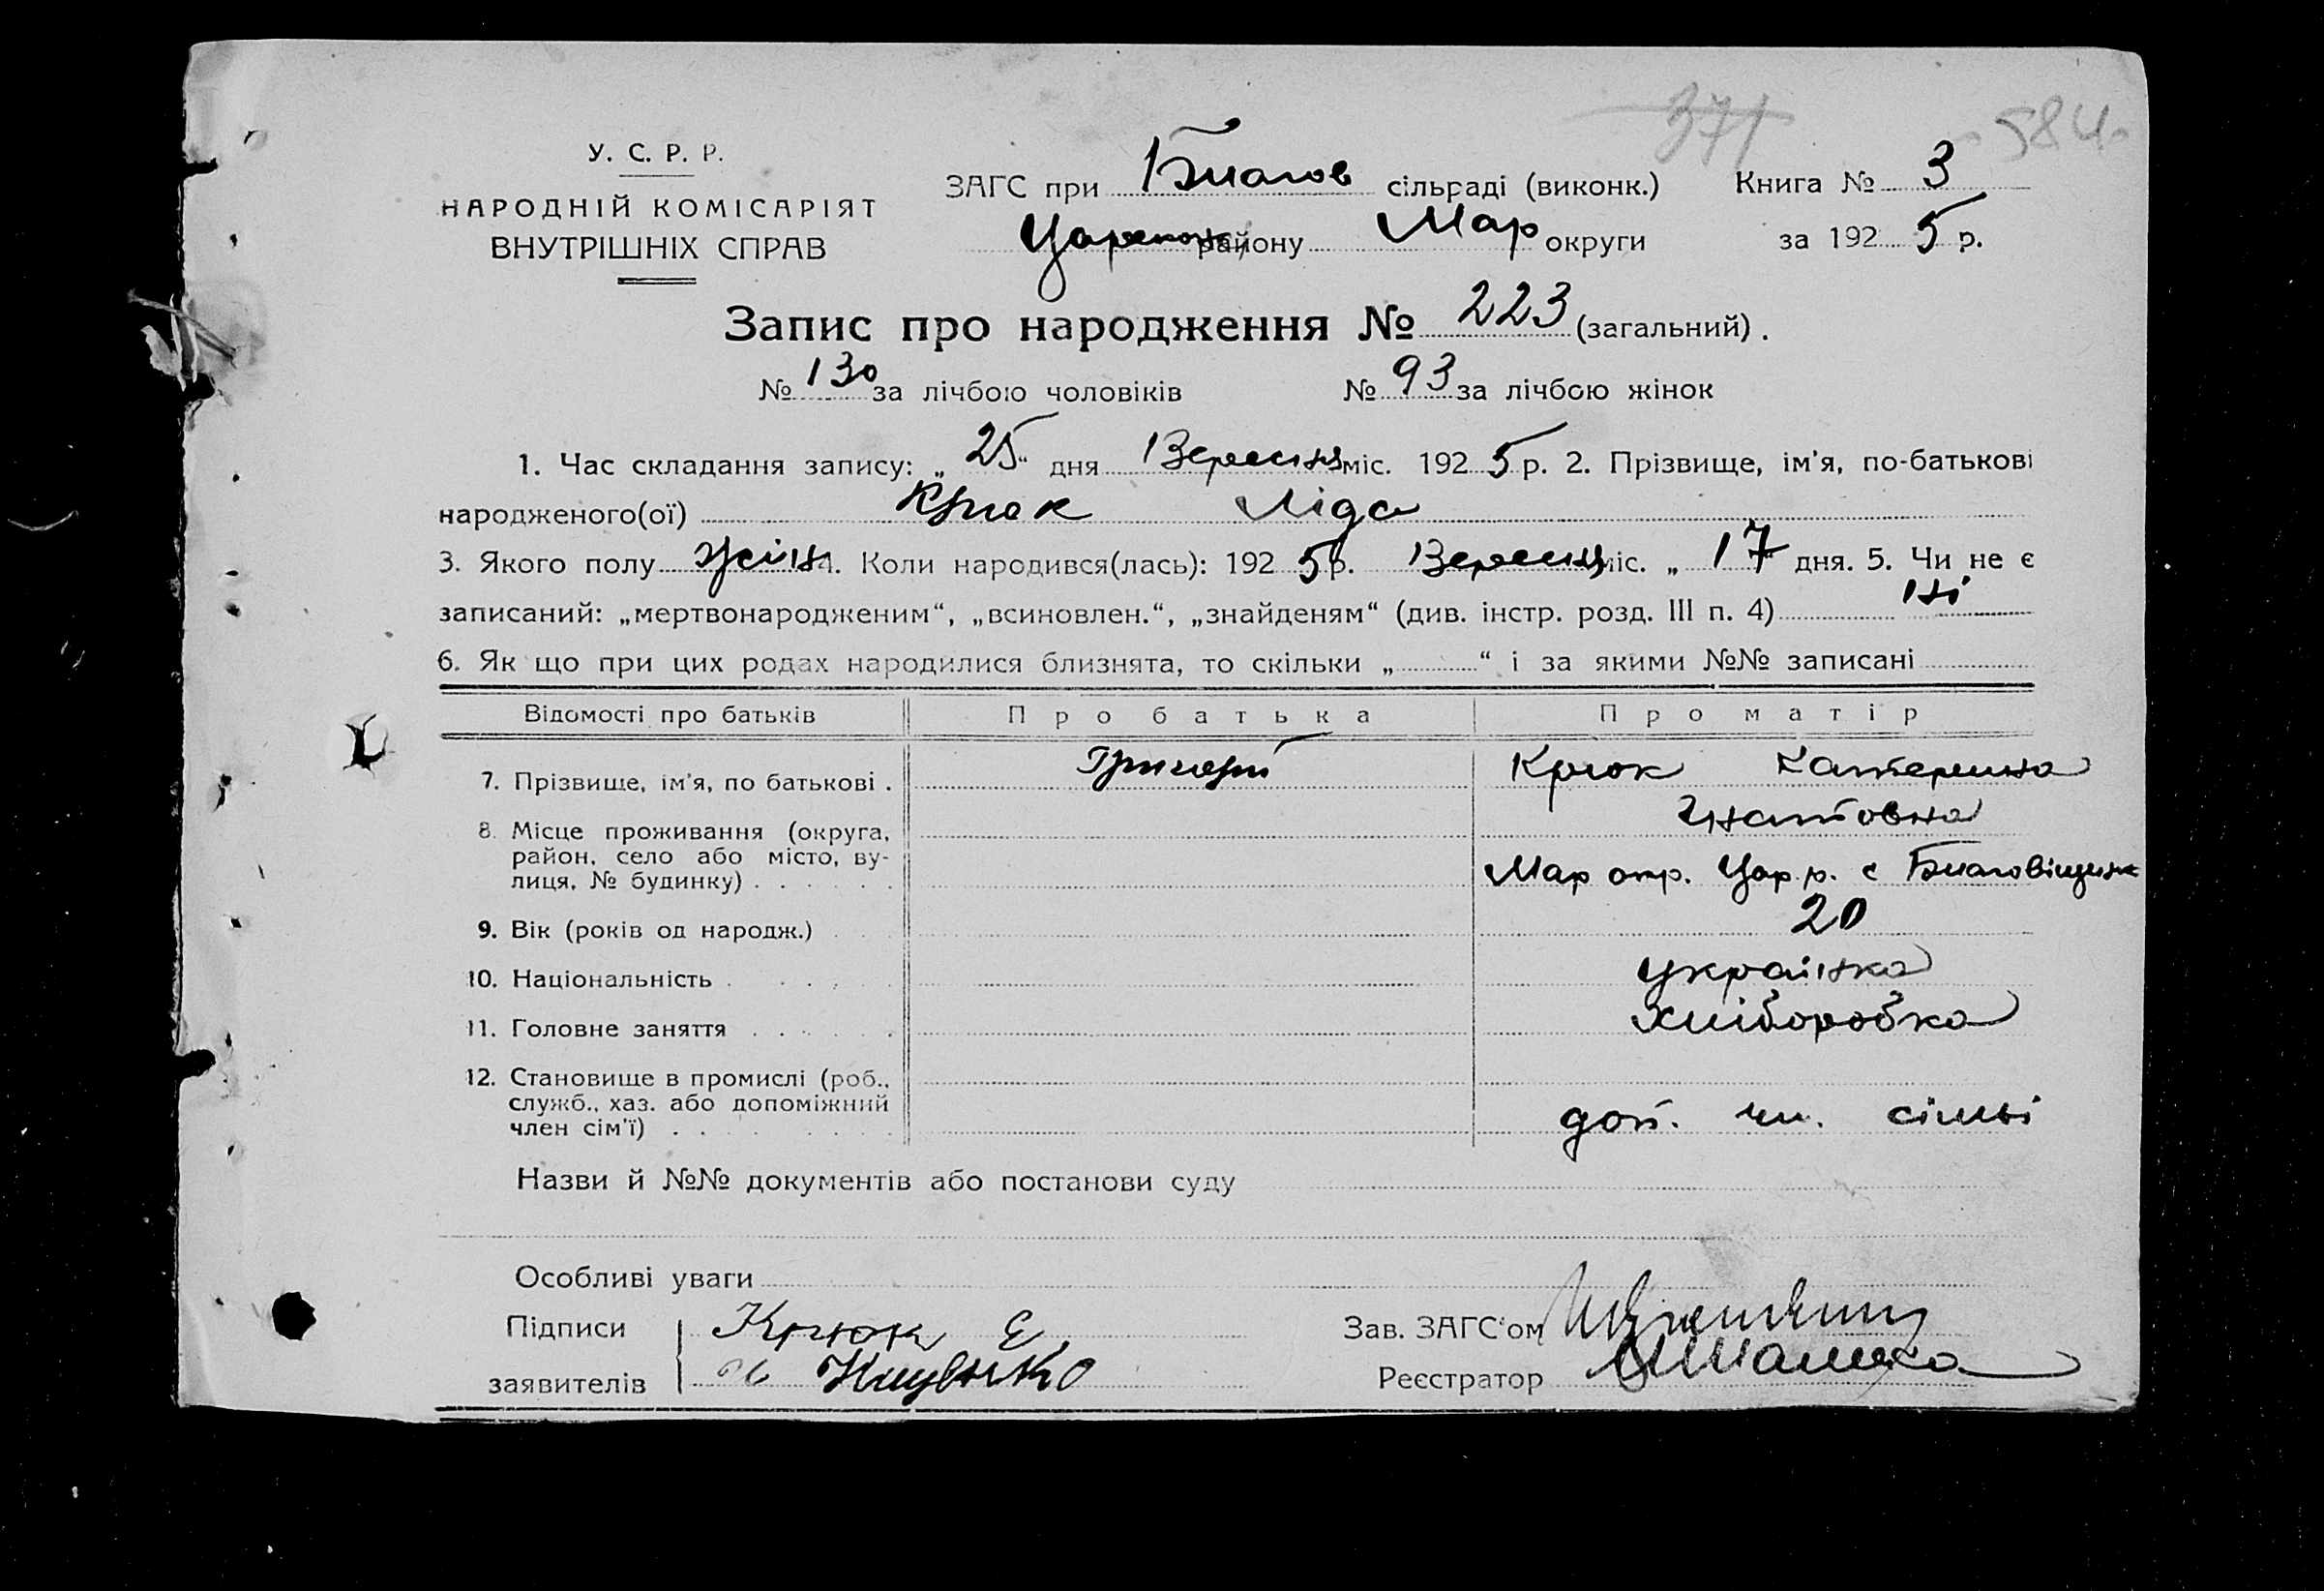 371 584
У. С. Р. Р.
НАРОДНІЙ КОМІСАРІЯТ
ВНУТРІШНІХ СПРАВ
ЗАГС при Благов сільраді (виконк.) Книга № 3
району Мар округи за 1925 р.
Запис про народження № 223 (загальний).
№ 130 за лічбою чоловіків № 93 за лічбою жінок
1. Час складання запису: „25“ дня Вересня міс. 1925 р. 2. Прізвище, ім'я, по-батькові
народженого(ої) Крюк Ліда
3. Якого полу жін 4. Коли народився(лась): 1925 р. Вересня міс. „17 дня. 5. Чи не є
записаний: „мертвонародженим“, „всиновлен.“, „знайденям“ (див. інстр. розд. III п. 4) ні
6. Як що при цих родах народилися близнята, то скільки „ “ і за якими №№ записані
Відомості про батьків Про батька Про матір
7. Прізвище, ім'я, по батькові . Григорій Крюк Катерина
Гнатовна
8. Місце проживання (округа,
район, село або місто, ву-
лиця, № будинку) . . . . . . Мар окр. Цар р. с Благовіщенк
9. Вік (років од народж.) 20
10. Національність . українка
11. Головне заняття . . . . . хліборобка
12. Становище в промислі (роб.,
служб., хаз. або допоміжний
член сім'ї) . . доп. чл. сімьі
Назви й №№ документів або постанови суду
Особливі уваги
Підписи Крюк Е Зав. ЗАГС'ом
заявителів Реєстратор